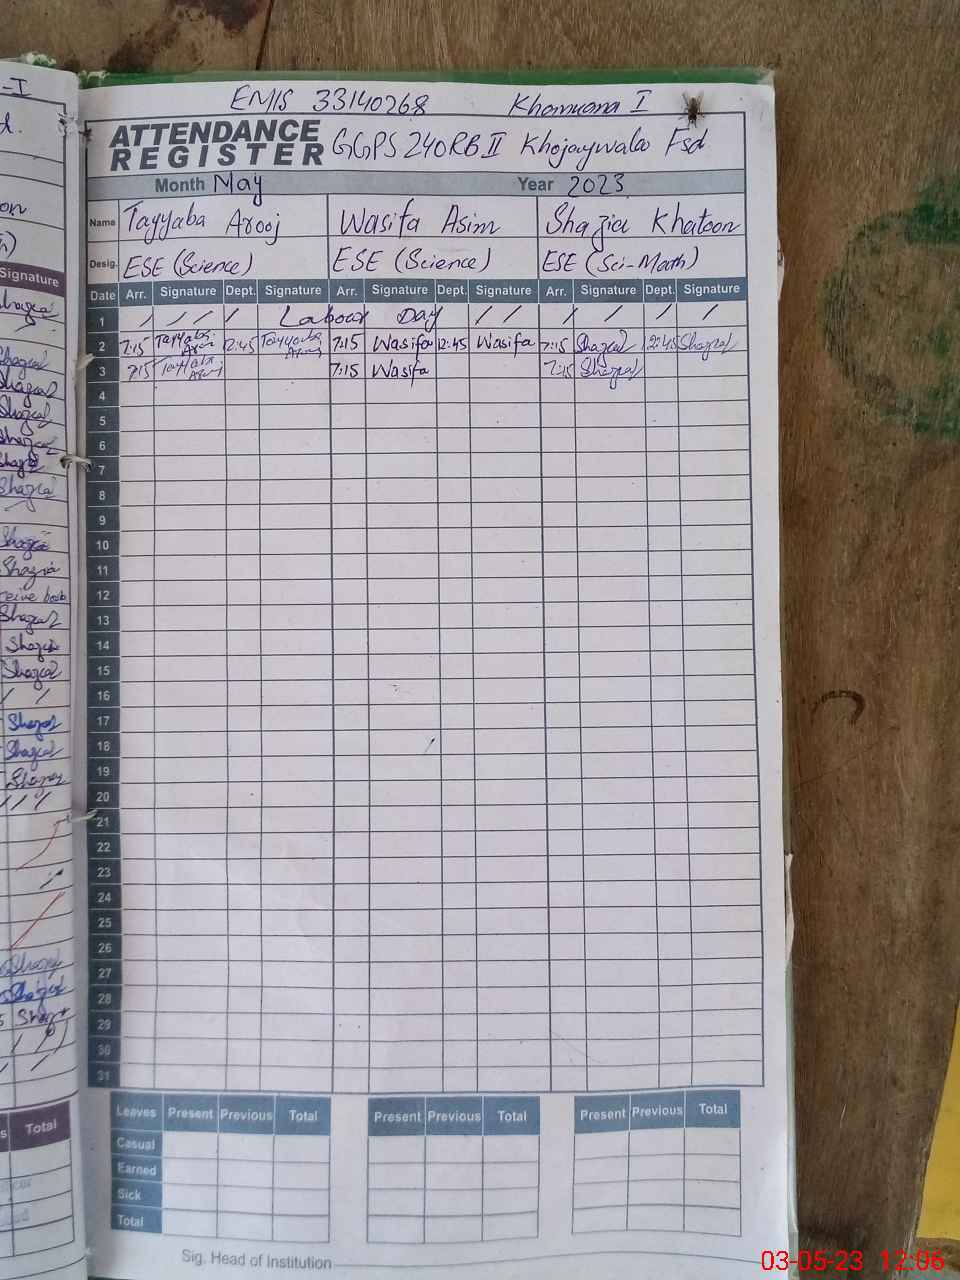 EMIS 33140268 Khanuana I
ATTENDANCE REGISTER GGPS 240RB II Khojaywala Fsd
Month May Year 2023
Name Tayyaba Arooj Wasifa Asim Shazia Khatoon
Desig. ESE (Science) ESE (Science) ESE (Sci-Math)
Date Arr. Signature Dept. Signature Arr. Signature Dept. Signature Arr. Signature Dept. Signature
1 / / / / Labour Day / / / / / /
2 7:15 Tayyaba Arooj 12:45 Tayyaba Arooj 7:15 Wasifa 12:45 Wasifa 7:15 Shazia 12:45 Shazia
3 7:15 Tayyaba Arooj 7:15 Wasifa 7:15 Shazia
4
5
6
7
8
9
10
11
12
13
14
15
16
17
18
19
20
21
22
23
24
25
26
27
28
29
30
31
Leaves Present Previous Total Present Previous Total Present Previous Total
Casual
Earned
Sick
Total
Sig. Head of Institution
Signature
Shazia
Total
03-05-23 12:06